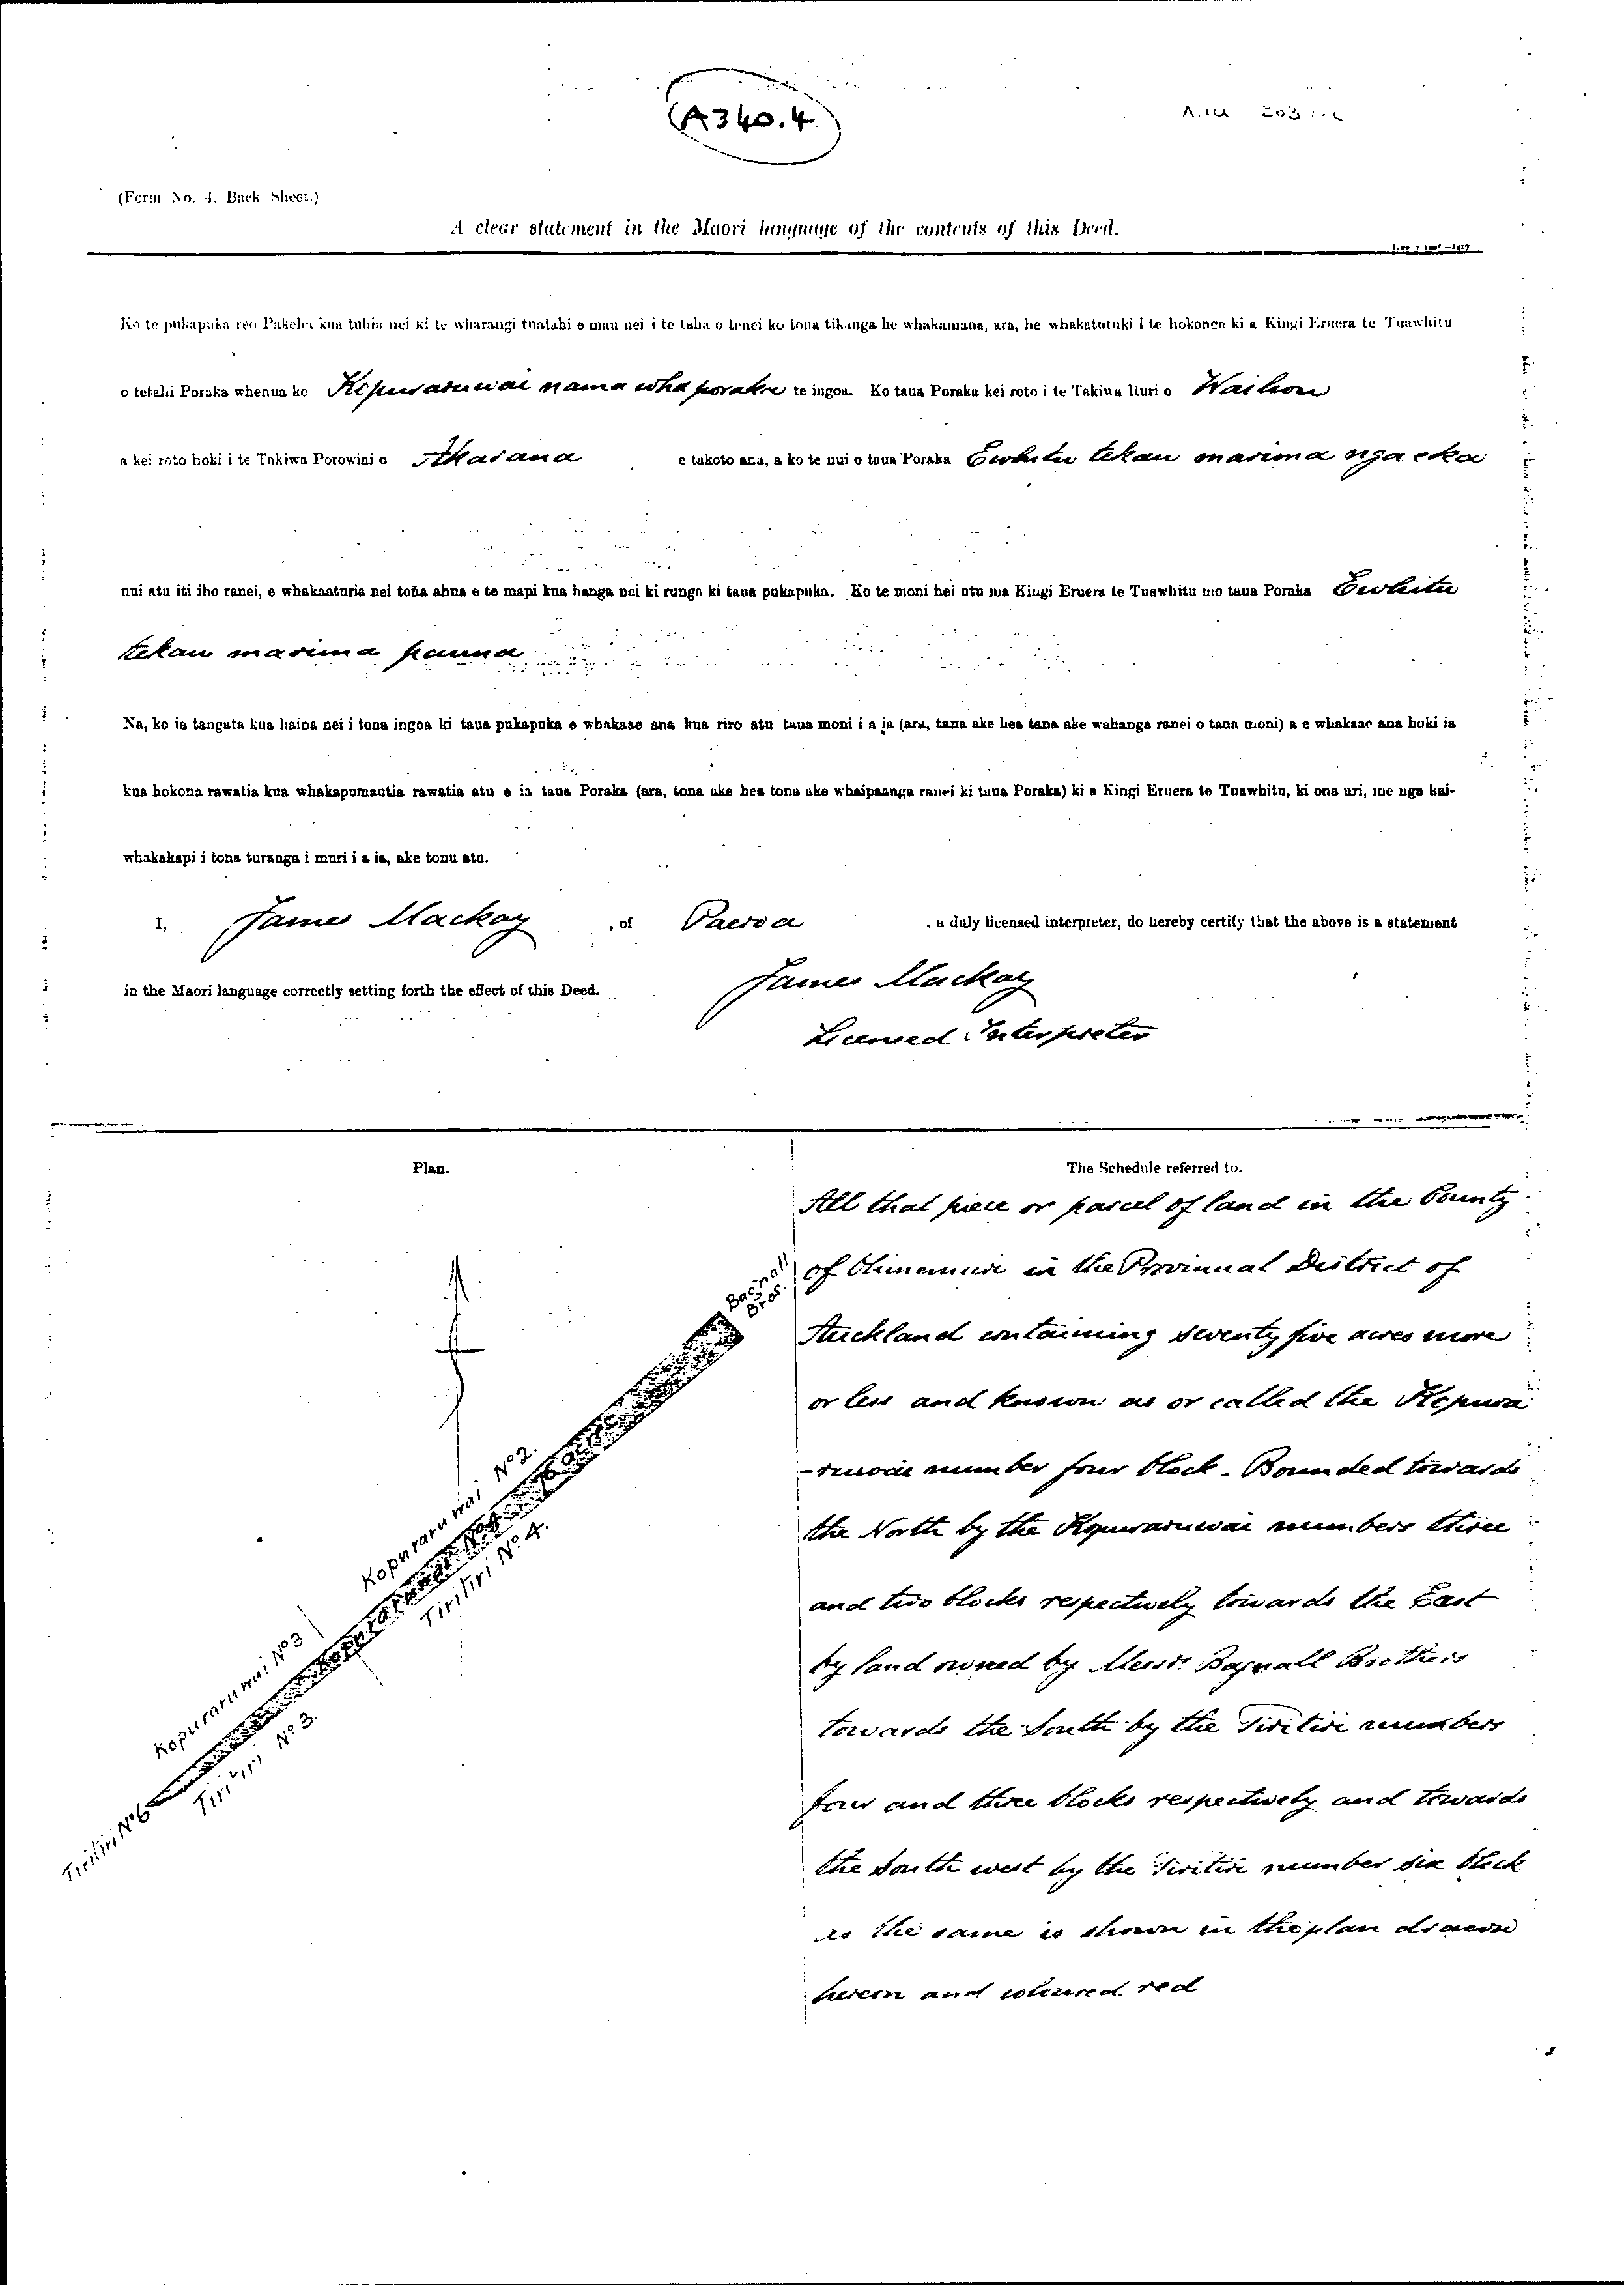 A340.4
(Form No. 4, Back Sheet.)
A clear statement in the Maori language of the contents of this Deed.
Ko te pukapuka reo Pakeha kua tuhia nei ki te wharangi tuatahi e mau nei i te taha o tenei ko tona tikanga he whakamana, ara, he whakatutuki i te hokonga ki a Kingi Eruera te Tuawhitu
o tetahi Poraka whenua ko Kopuraruwai nama wha poraka te ingoa. Ko taua Poraka kei roto i te Takiwa Ruri o Waihou
a kei roto hoki i te Takiwa Porowini o Akarana e takoto ana, a ko te nui o taua Poraka E whitu tekau marima nga eka
nui atu iti iho ranei, e whakaaturia nei tona ahua e te mapi kua hanga nei ki runga ki taua pukapuka. Ko te moni hei utu ma Kingi Eruera te Tuawhitu mo taua Poraka E whitu
tekau marima pauna
Na, ko ia tangata kua haina nei i tona ingoa ki taua pukapuka e whakaae ana kua riro atu taua moni i a ia (ara, tana ake hea tana ake wahanga ranei o taua moni) a e whakaae ana hoki ia
kua hokona rawatia kua whakapumautia rawatia atu e ia taua Poraka (ara, tona ake hea tona ake whaipaanga ranei ki taua Poraka) ki a Kingi Eruera te Tuawhitu, ki ona uri, me nga kai-
whakakapi i tona turanga i muri i a ia, ake tonu atu.
I, James Mackay, of Paeroa, a duly licensed interpreter, do hereby certify that the above is a statement
in the Maori language correctly setting forth the effect of this Deed.
James Mackay
Licensed Interpreter
Plan.
Bagnall
Bros.
Kopuraruwai No 2.
Tiritiri No. 4.
Kopuraruwai No 3
Tiritiri No 3.
Tiritiri No 6
The Schedule referred to.
All that piece or parcel of land in the County
of Ohinemuri in the Provincial District of
Auckland containing seventy five acres more
or less and known as or called the Kopura
-ruwai number four block. Bounded towards
the North by the Kopuraruwai numbers three
and two blocks respectively towards the East
by land owned by Messrs. Bagnall Brothers
towards the South by the Tiritiri numbers
four and three blocks respectively and towards
the South west by the Tiritiri number six block
as the same is shown in the plan drawn
hereon and coloured red